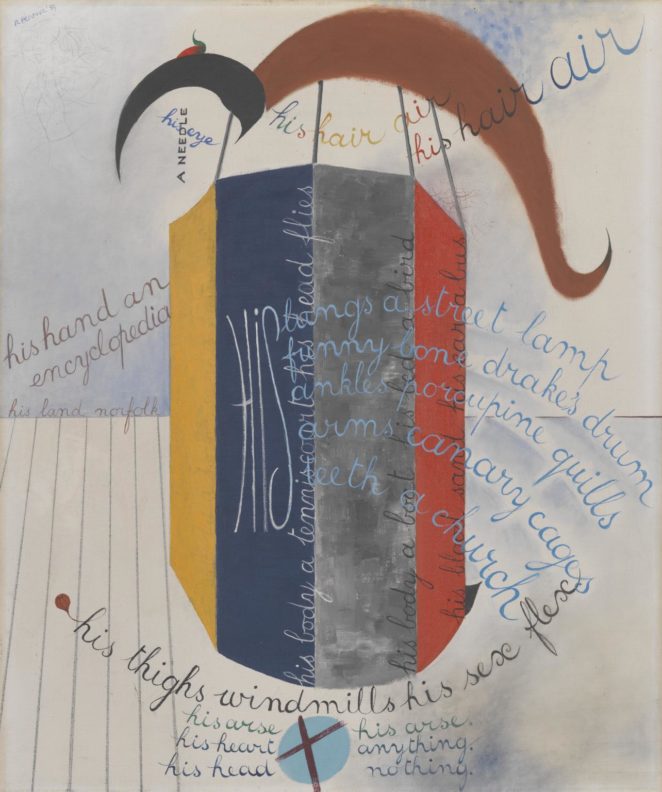 his eye
A NEEDLE
his hair air
his hair air
his hand an
encyclopedia
his land norfolk
HiS
lungs a street lamp
funny bone drake's drum
ankles porcupine quills
arms canary cages
teeth a church
his body a his head flies
his body a boat his bed a bird
his sand his ear a bus
his thighs windmills his sex flex
his arse his arse.
his heart anything.
his head nothing.